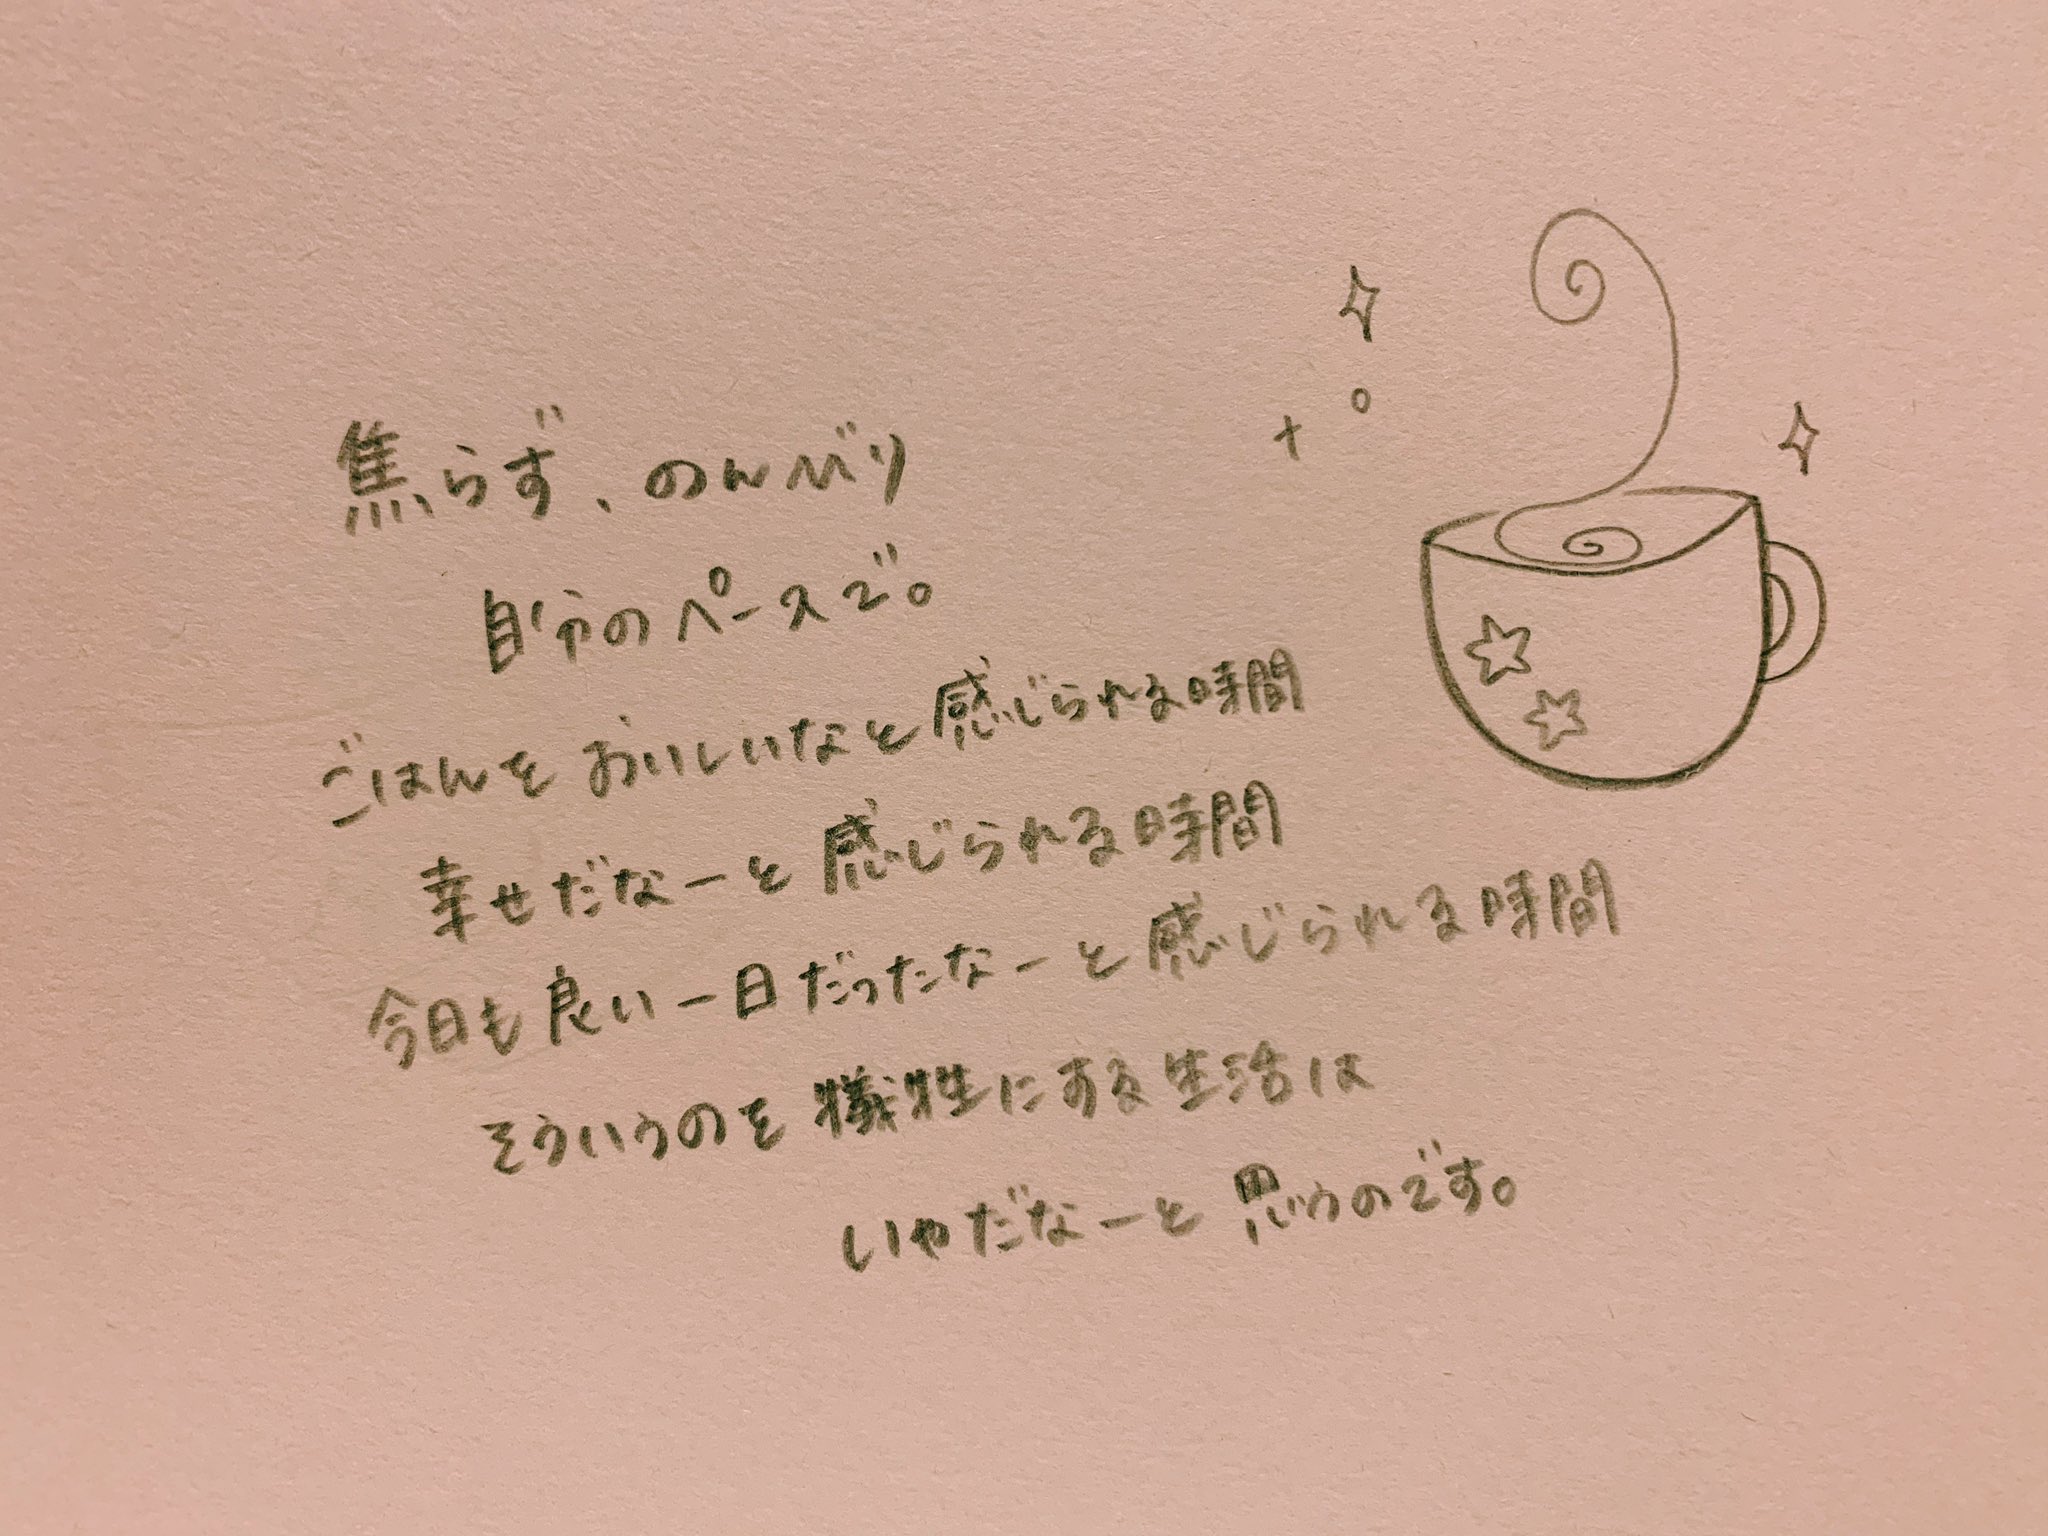 焦らず、のんびり
自分のペースで。
ごはんをおいしいなと感じられる時間
幸せだなーと感じられる時間
今日も良い一日だったなーと感じられる時間
そういうのを犠牲にする生活は
いやだなーと思うのです。